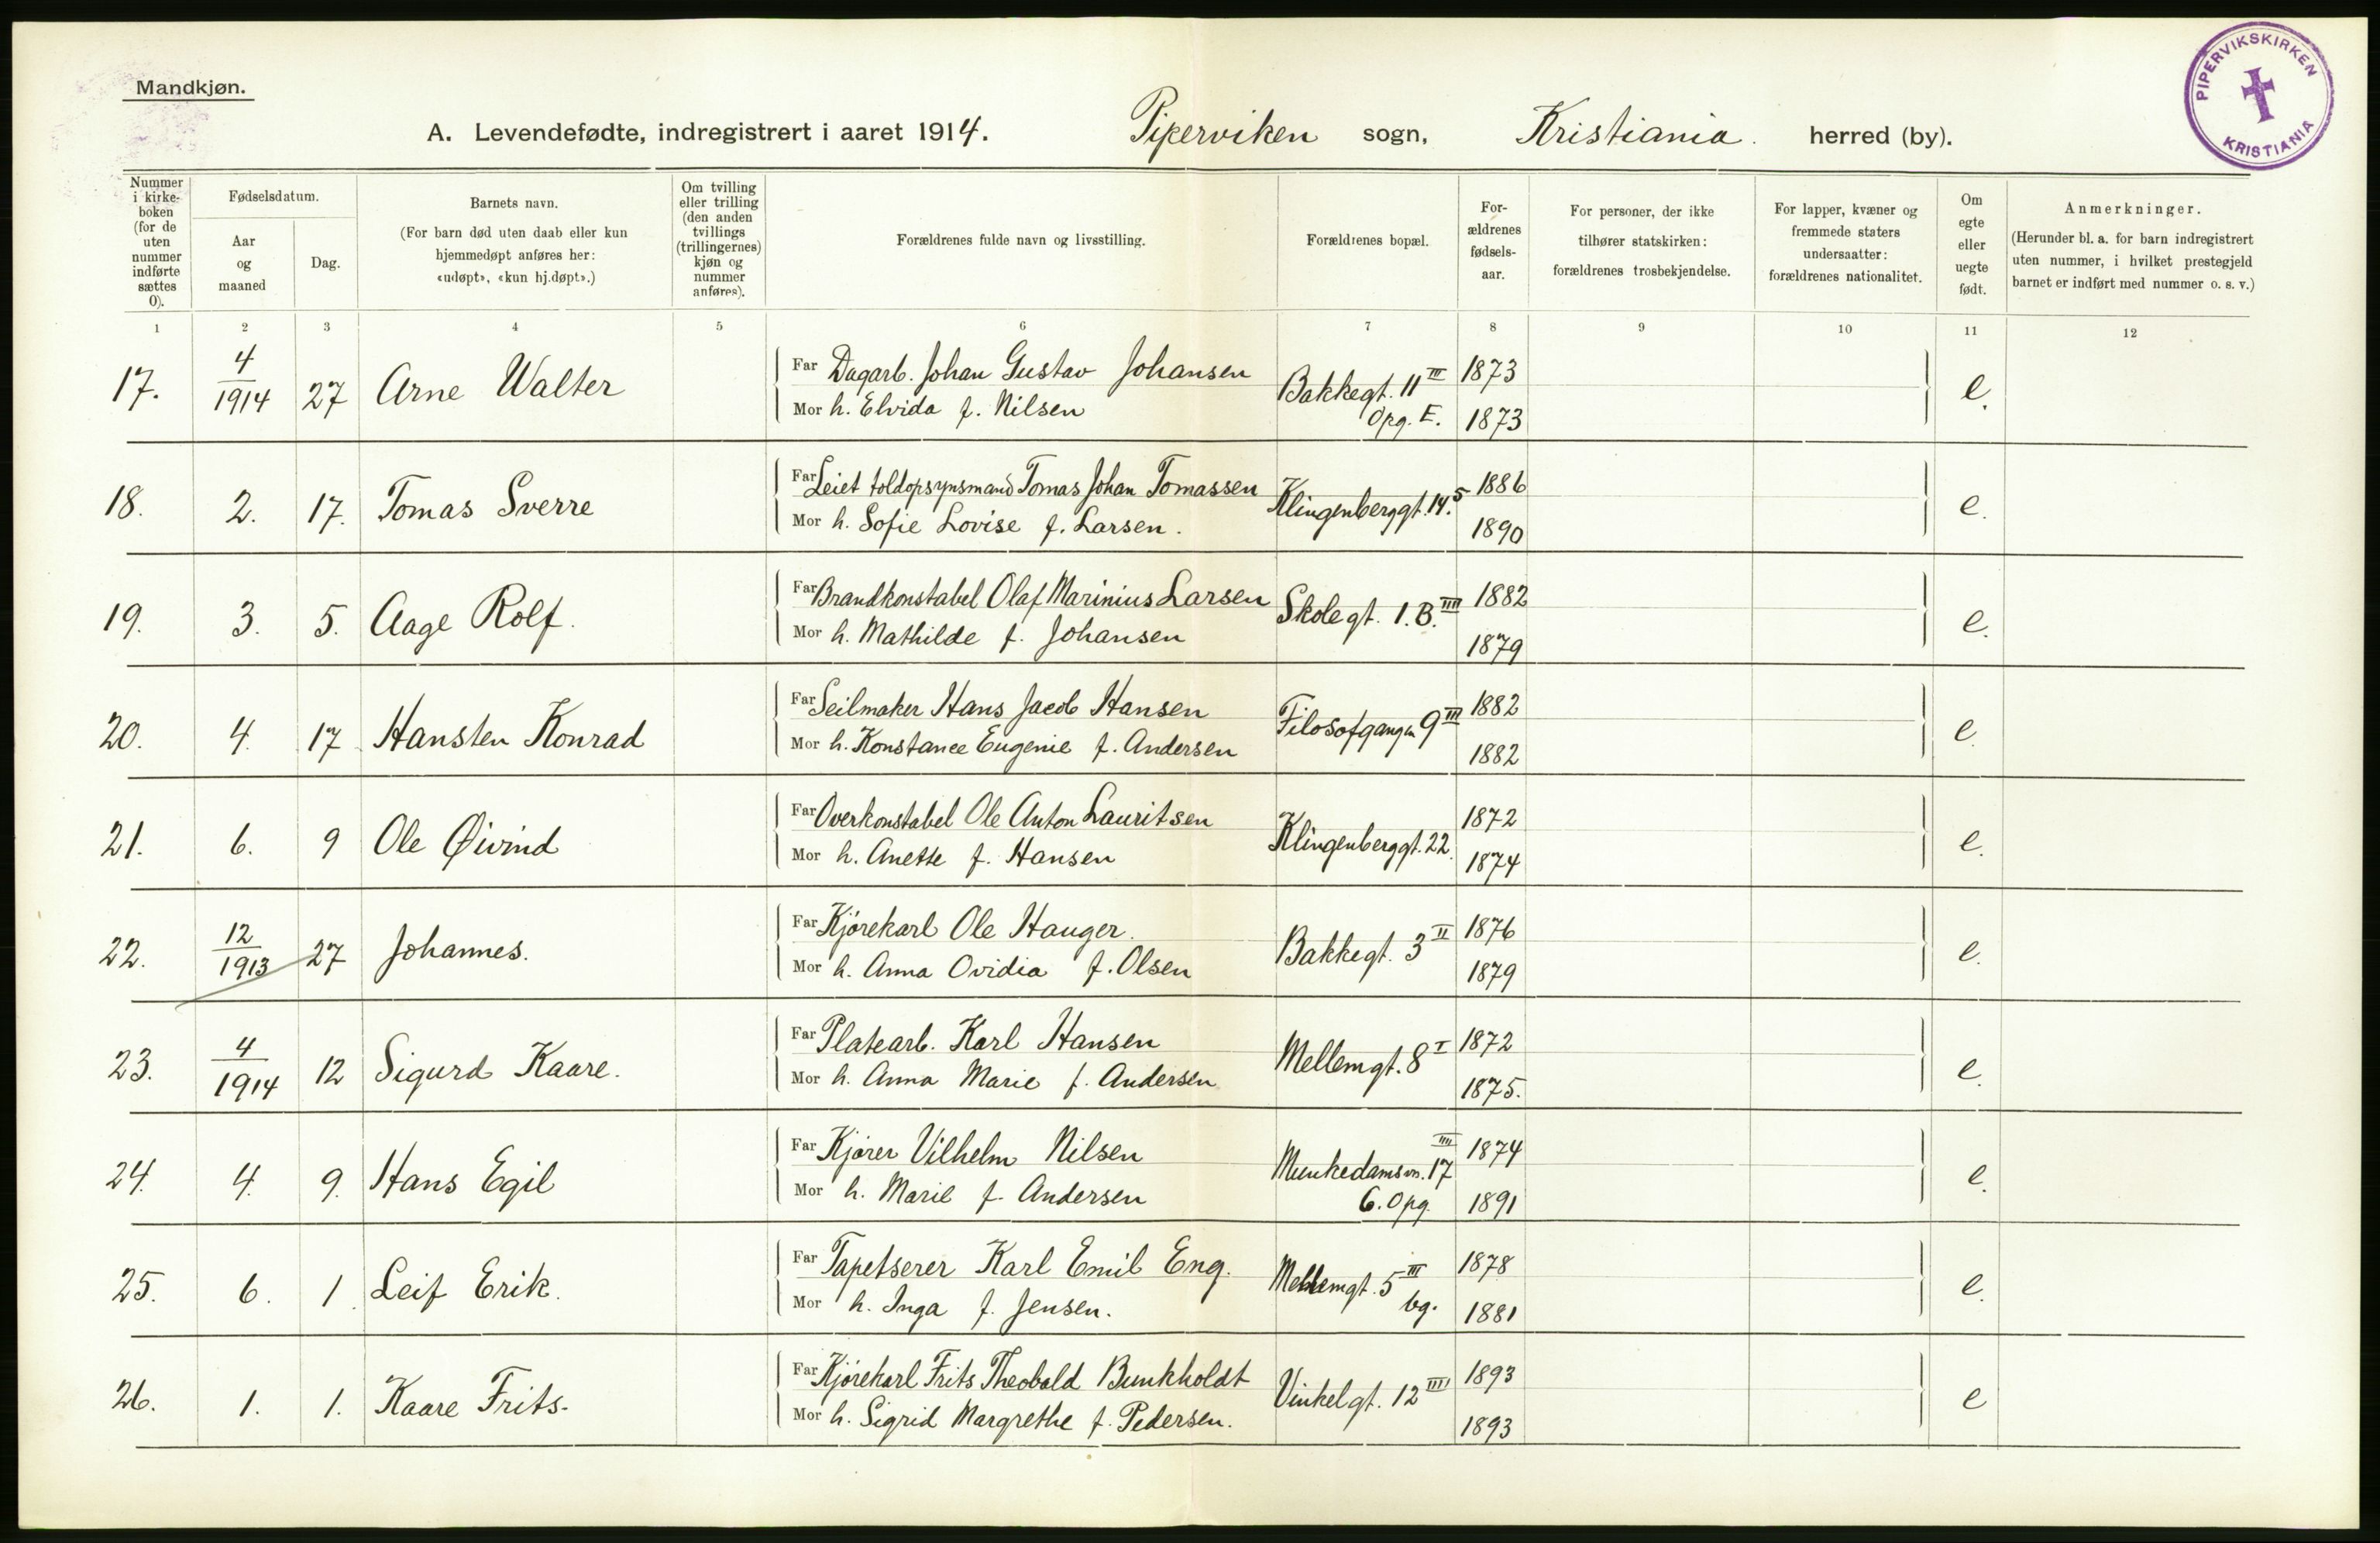 Mandkjøn.
PIPERVIKSKIRKEN
KRISTIANIA
A. Levendefødte, indregistrert i aaret 1914. Piperviken sogn, Kristiania. herred (by).
Nummer i kirke-boken (for de uten nummer indførte sættes 0).
Fødselsdatum.
Aar og maaned
Dag.
Barnets navn.
(For barn død uten daab eller kun hjemmedøpt anføres her: «udøpt», «kun hj.døpt».)
Om tvilling eller trilling (den anden tvillings (trillingernes) kjøn og nummer anføres).
Forældrenes fulde navn og livsstilling.
Forældrenes bopæl.
For-ældrenes fødsels-aar.
For personer, der ikke tilhører statskirken: forældrenes trosbekjendelse.
For lapper, kvæner og fremmede staters undersaatter: forældrenes nationalitet.
Om egte eller uegte født.
Anmerkninger.
(Herunder bl. a. for barn indregistrert uten nummer, i hvilket prestegjeld barnet er indført med nummer o. s. v.)
1 2 3 4 5 6 7 8 9 10 11 12
17. 4/1914 27 Arne Walter Far Dagarb. Johan Gustav Johansen Bakkegt. 11 III 1873 e.
Mor h. Elvida f. Nilsen Opg. E. 1873
18. 2. 17. Tomas Sverre Far Leiet toldopsynsmand Tomas Johan Tomassen Klingenberggt. 14.5 1886 e.
Mor h. Sofie Lovise f. Larsen. 1890
19. 3. 5. Aage Rolf. Far Brandkonstabel Olaf Marinius Larsen Skolegt. 1.B. IIII 1882 e.
Mor h. Mathilde f. Johansen 1879
20. 4. 17 Hansten Konrad Far Seilmaker Hans Jacob Hansen Filosofgangen 9 III 1882 e.
Mor h. Konstance Eugenie f. Andersen 1882
21. 6. 9 Ole Øivind Far Overkonstabel Ole Anton Lauritsen Klingenberggt. 22. 1872 e.
Mor h. Anette f. Hansen 1874
22. 12/1913 27 Johannes. Far Kjørekarl Ole Hauger. Bakkegt. 3 II 1876 e.
Mor h. Anna Ovidia f. Olsen 1879
23. 4/1914 12 Sigurd Kaare. Far Platearb. Karl Hansen Mellemgt. 8 I 1872 e.
Mor h. Anna Marie f. Andersen 1875.
24. 4. 9. Hans Egil Far Kjører Vilhelm Nilsen Munkedamsvn. 17 IIII 1874 e.
Mor h. Marie f. Andersen 6. Opg. 1891
25. 6. 1. Leif Erik. Far Tapetserer Karl Emil Eng. Mellemgt. 5 III 1878 e.
Mor h. Inga f. Jensen. bg. 1881
26. 1. 1. Kaare Frits. Far Kjørekarl Frits Theobald Bunkholdt Vinkelgt. 12 IIII 1893 e
Mor h. Sigrid Margrethe f. Pedersen. 1893